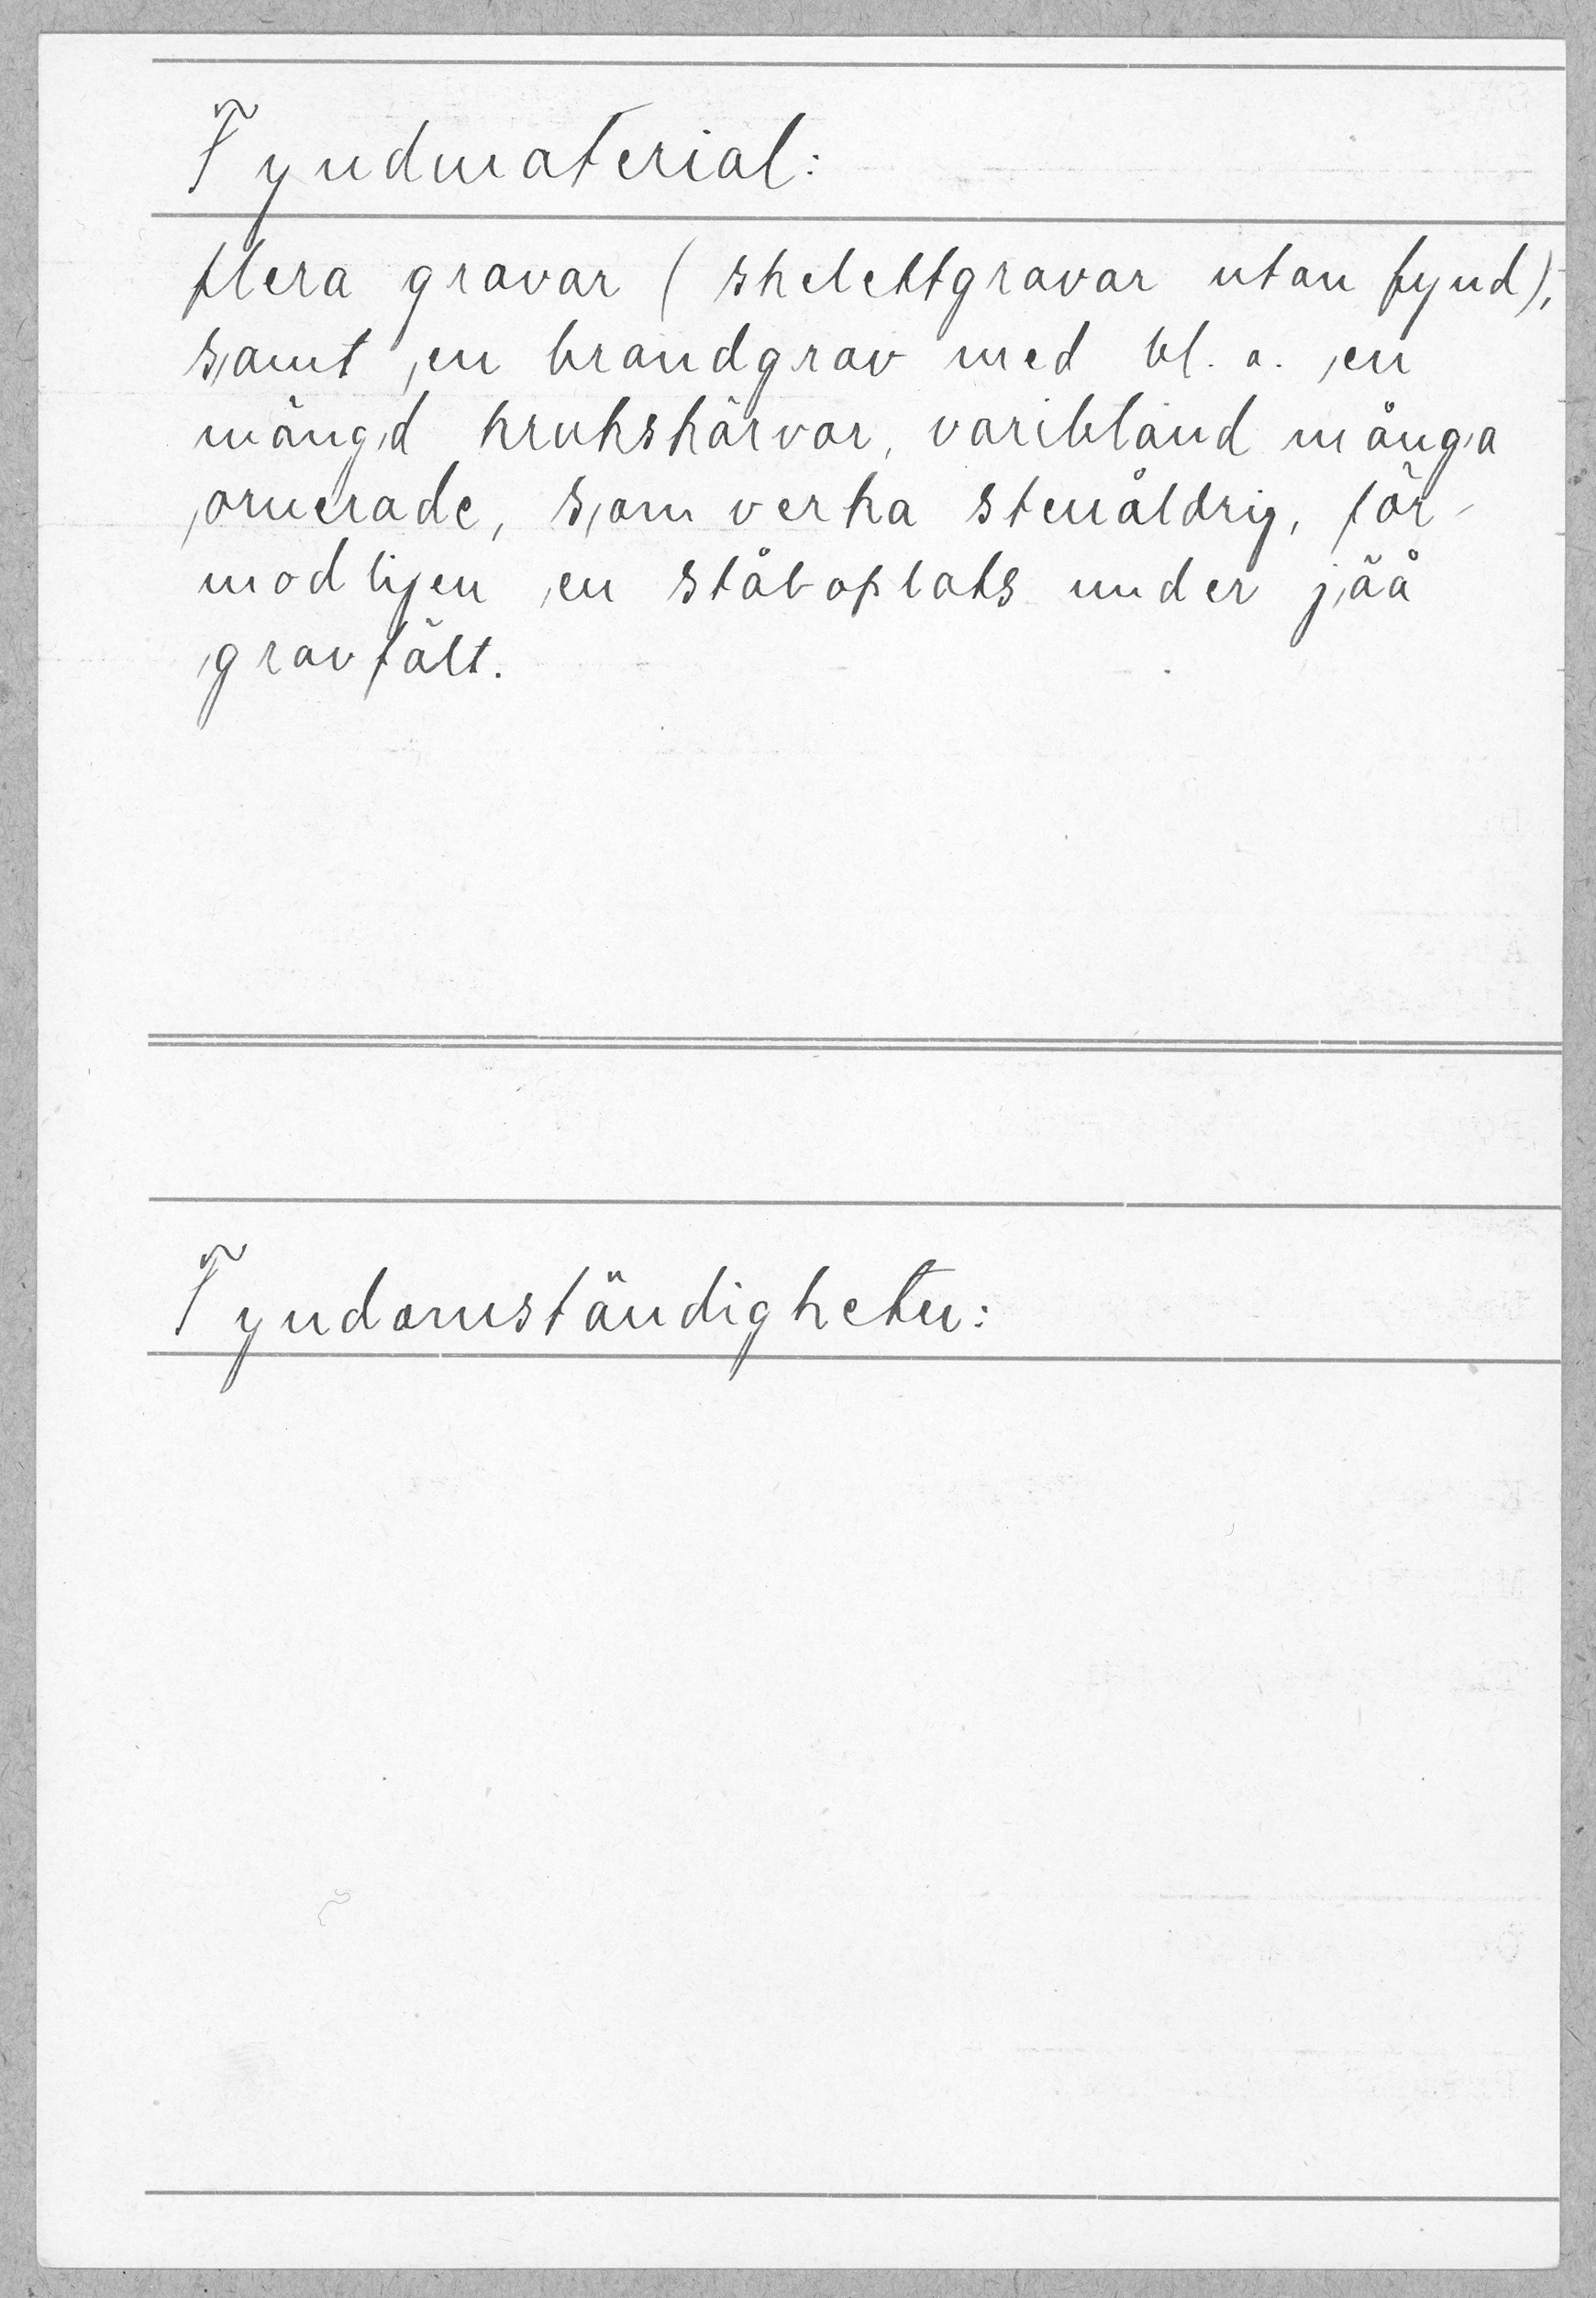 Fyndmaterial:
flera gravar (skelettgravar utan fynd),
samt en brandgrav med bl. a. en
mängd krukskärvor, varibland många
ornerade, som verka stenåldrig, för-
modligen en ståboplats under jäå
gravfält.
Fyndomständigheter: